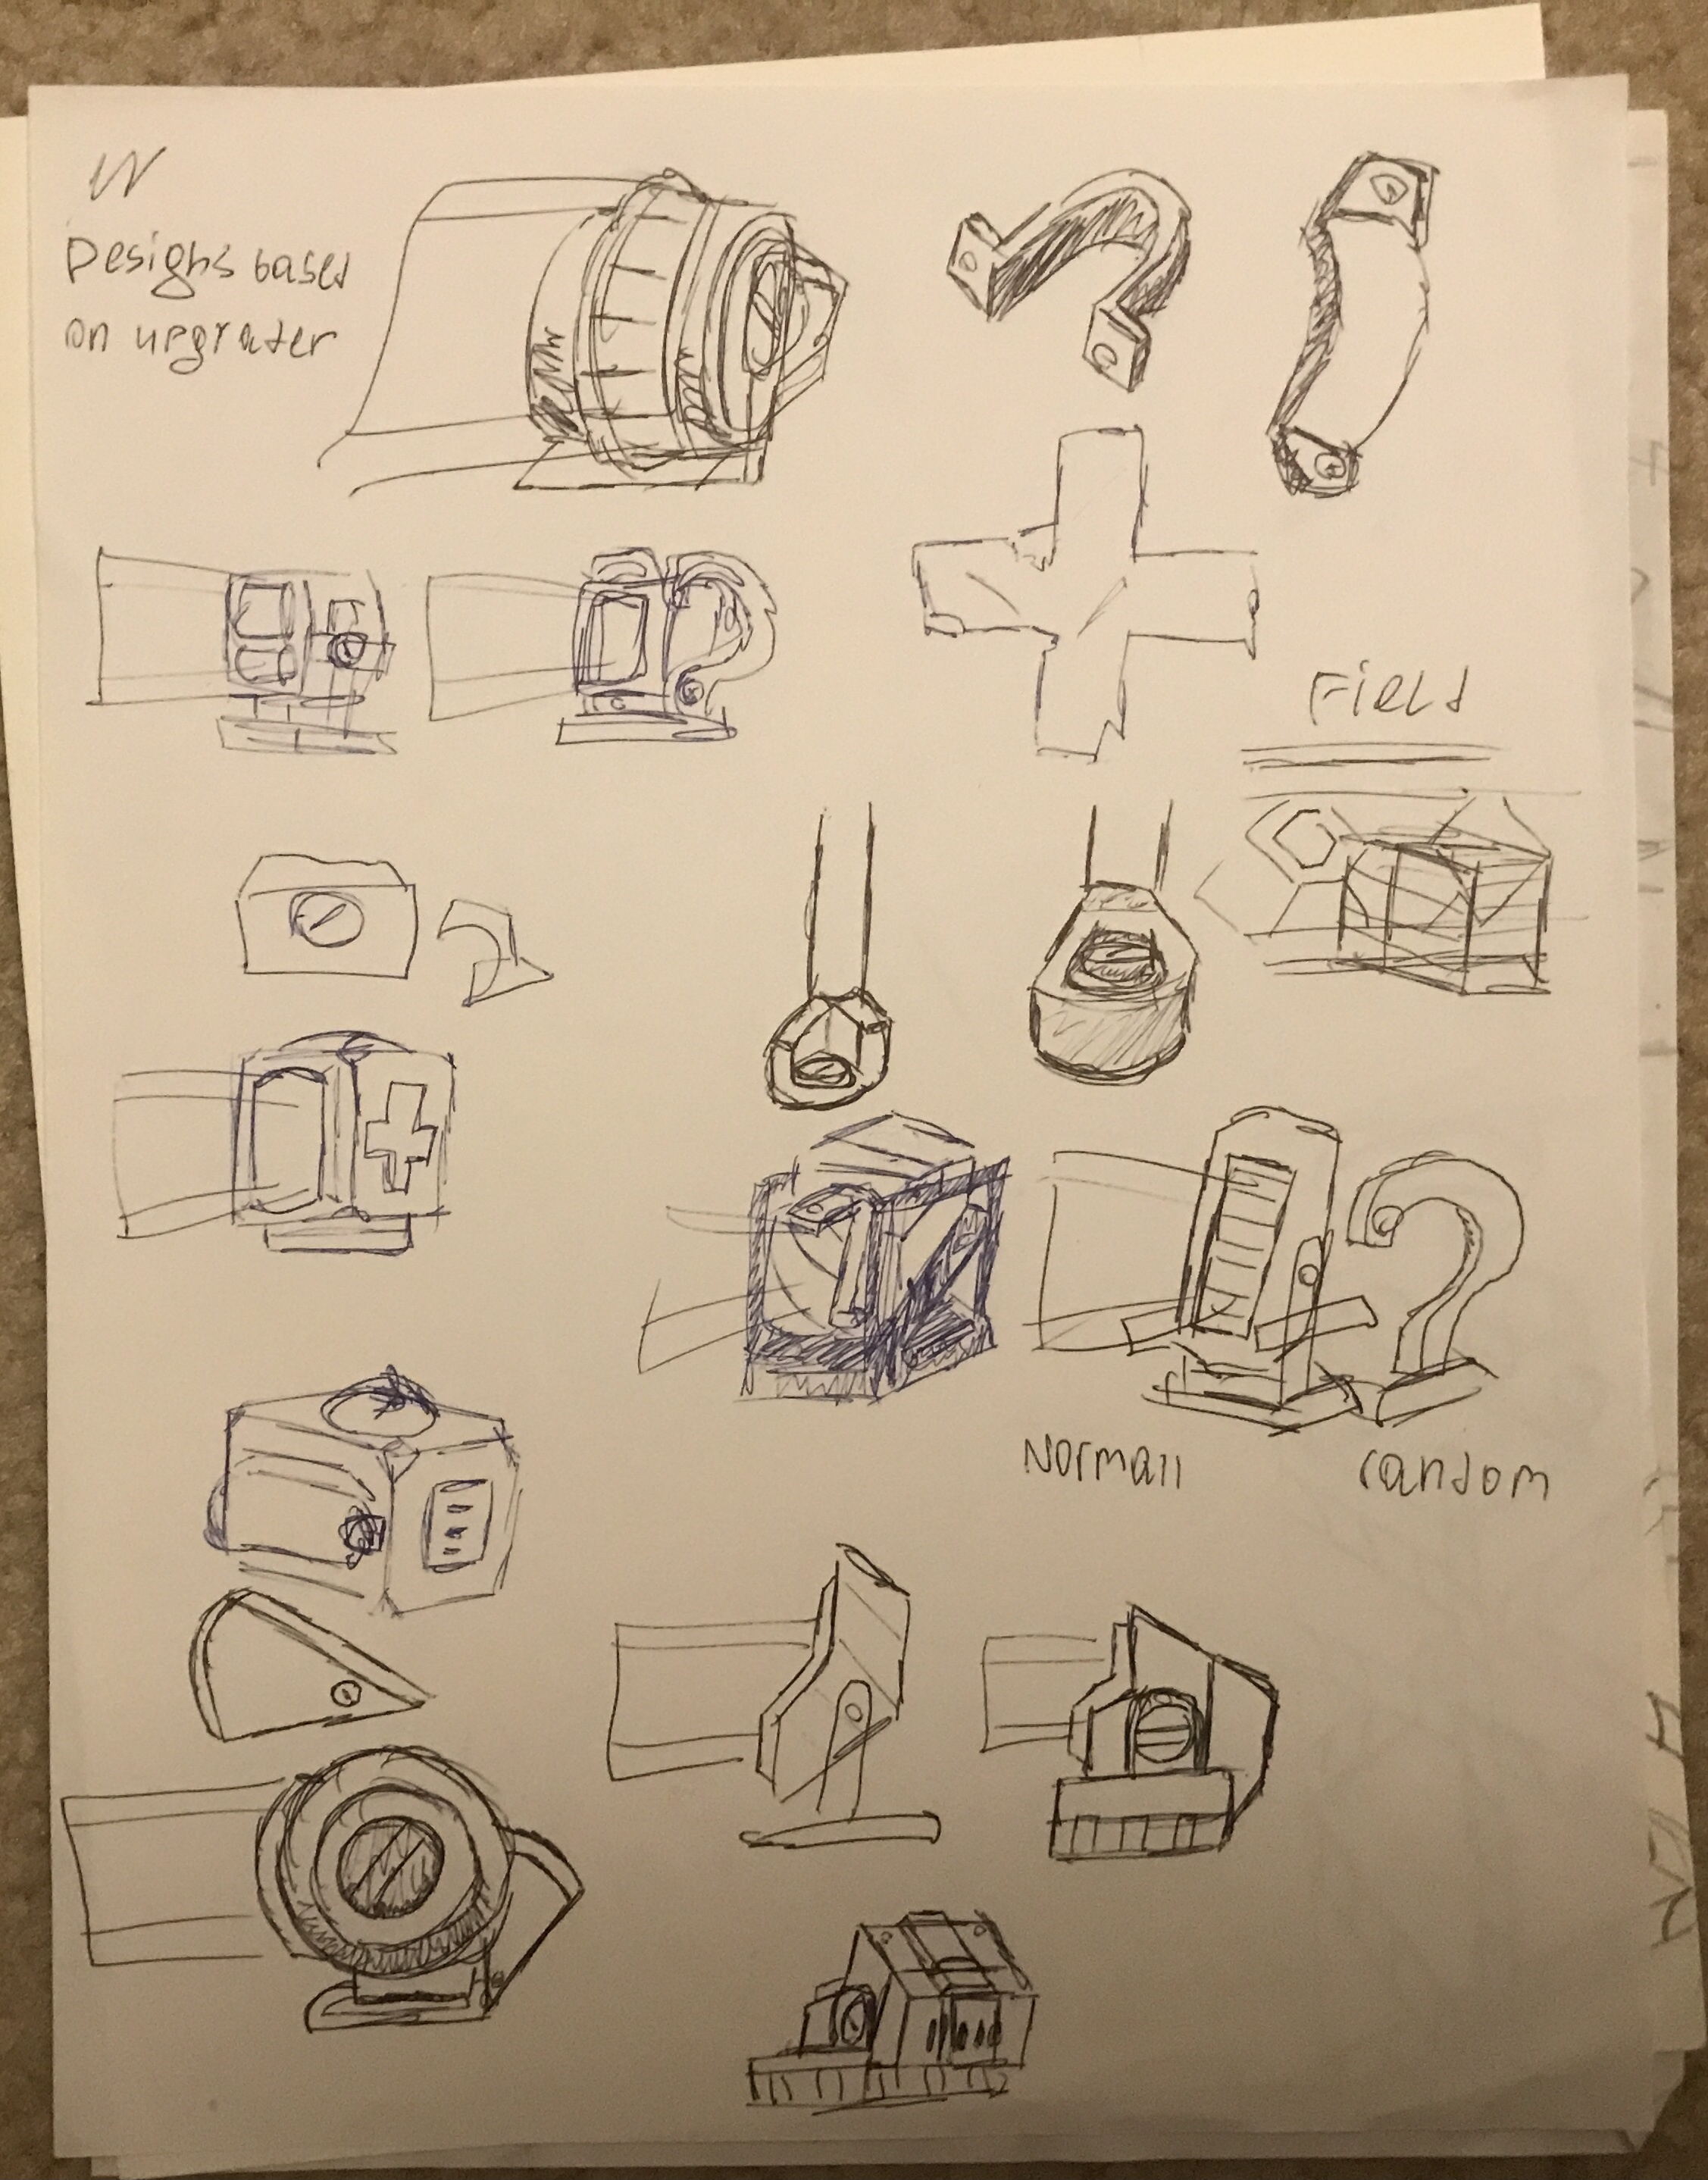 Designs based
on upgrater
Field
Normall
random